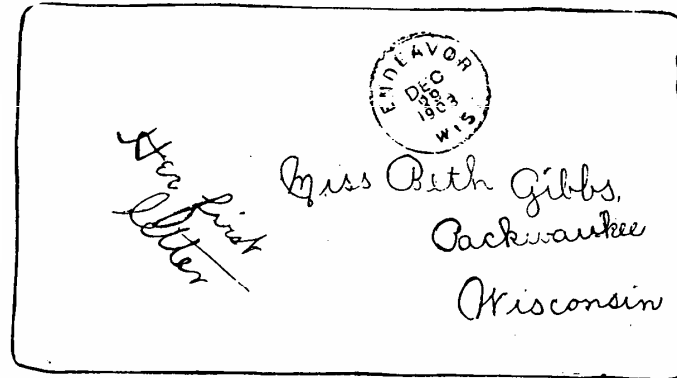 ENDEAVOR
DEC
29
1903
WIS
Her first
letter
Miss Beth Gibbs,
Packwaukee
Wisconsin